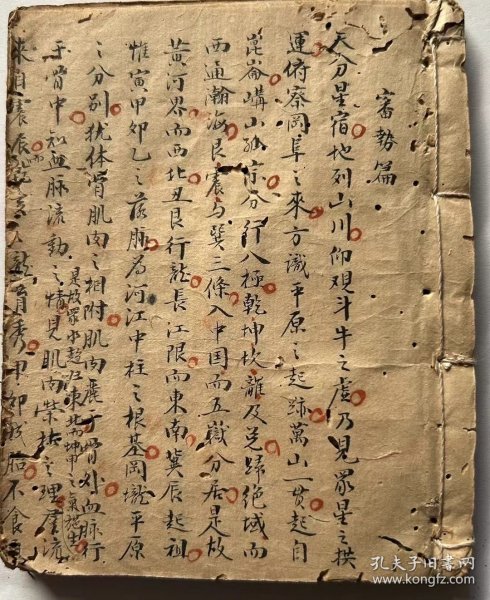 審势篇
天分星宿地列山川仰观斗牛之虚乃見眾星之拱
運俯察岡阜之來方識平原之起跡萬山一貫起自
崑崙嶙山脉分行八極乾坤坎離及兑踪绝域而
西通瀚海艮震与巽三條入中国而五嶽分居是故
黄河界而西北丑艮行龍長江限而東南巽辰起祖
惟寅甲卯乙之落脉為河江中柱之根基岡壠平原
之分别犹体骨肌肉之相附肌肉麗于骨外血脉行
于骨中知血脉流動之情見肌肉荣枯之理
是故眾水趋归東北
來自震辰
孔夫子旧书网
www.kongfz.com